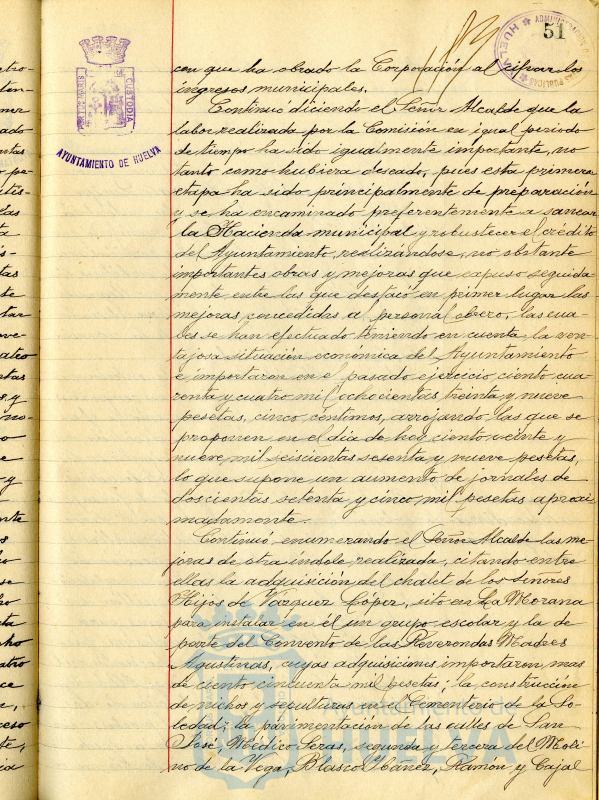 51
AYUNTAMIENTO DE HUELVA
CUSTODIA
HUELVA
con que ha obrado la Corporación al cifrar los
ingresos municipales.
Continuó diciendo el Señor Alcalde que la
labor realizada por la Comisión en igual período
de tiempo ha sido igualmente importante, no
tanto como hubiera deseado, pues esta primera
etapa ha sido principalmente de preparación
y se ha encaminado preferentemente a sanear
la Hacienda municipal y robustecer el crédito
del Ayuntamiento, realizándose, no obstante
importantes obras y mejoras que expuso seguida-
mente entre las que destacó en primer lugar las
mejoras concedidas a personal obrero, las cua-
les se han efectuado teniendo en cuenta la ven-
tajosa situación económica del Ayuntamiento
e importaron en el pasado ejercicio ciento cua-
renta y cuatro mil ochocientas treinta y nueve
pesetas, cinco céntimos, arrojando las que se
proponen en el día de hoy ciento veinte y
nueve mil seiscientas sesenta y nueve pesetas,
lo que supone un aumento de jornales de
doscientas setenta y cinco mil pesetas aproxi-
madamente.
Continuó enumerando el Señor Alcalde las me-
joras de otra índole realizada, citando entre
ellas la adquisición del chalet de los Señores
Hijos de Vázquez López, sito en La Morana
para instalar en él un grupo escolar y la de
parte del Convento de las Reverendas Madres
Agustinas, cuyas adquisiciones importaron mas
de ciento cincuenta mil pesetas; la construcción
de nichos y sepulturas en el Cementerio de la So-
ledad; la pavimentación de las calles de San
José, Médico Seras, segunda y tercera del Moli-
no de la Vega, Blasco Ibáñez, Ramón y Cajal
Ayuntamiento de
HUELVA